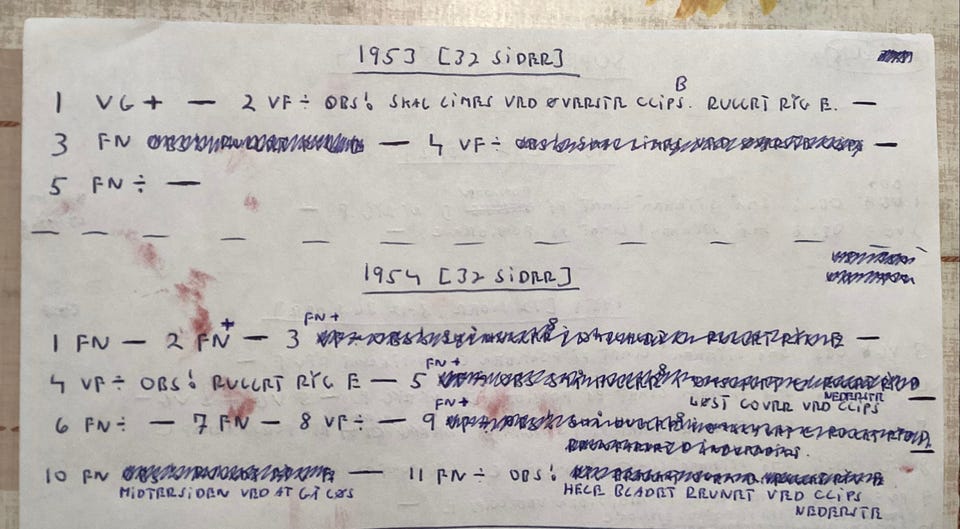 1953 [32 SiDER]
1 VG + — 2 VF ÷ OBS! SKAL LIMES VED ØVERSTE CLIPS. B RULLET RYG E. —
3 FN — 4 VF ÷ —
5 FN ÷ —
1954 [32 SiDER]
1 FN — 2 FN + — 3 FN + —
4 VF ÷ OBS! RULLET RYG E — 5 FN +
LØST COVER VED CLIPS NEDERSTE —
6 FN ÷ — 7 FN — 8 VF ÷ — 9 FN + —
10 FN — 11 FN ÷ OBS!
MIDTERSIDEN VED AT GÅ LØS HELE BLADET REVNET VED CLIPS
NEDERSTE